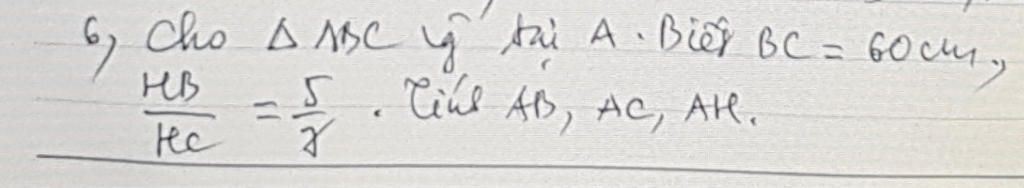 6, Cho Δ ABC vg tại A. Biết BC = 60cm,
HB/HC = 5/8. Tính AB, AC, AH.